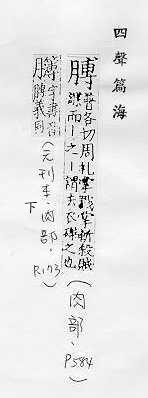 四聲篇海
膊 普各切周礼掌戮掌斬殺賊
諜而丨之丨謂去衣磔之也
(肉部、P584)
字書音
義同
(元刊本、肉部、
下
R173)